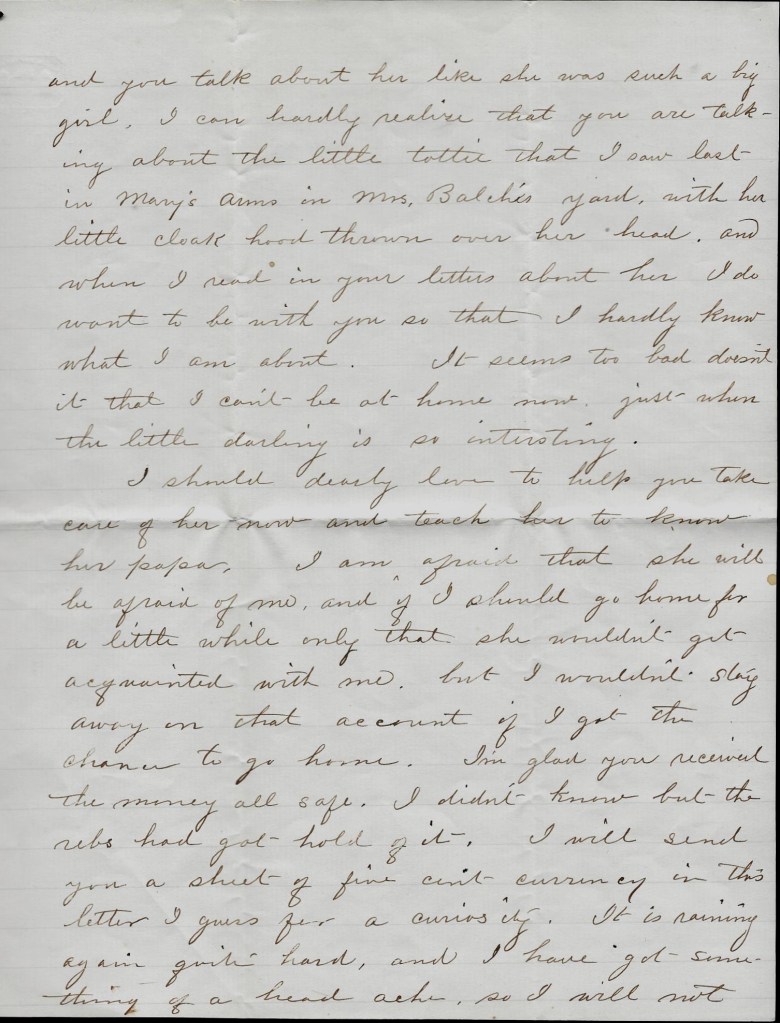 and you talk about her like she was such a big
girl, I can hardly realize that you are talk-
ing about the little tottie that I saw last
in Mary's arms in Mrs. Balch's yard, with her
little cloak hood thrown over her head, and
when I read in your letters about her I do
want to be with you so that I hardly know
what I am about. It seems too bad doesn't
it that I can't be at home now, just when
the little darling is so intersting.
I should dearly love to help you take
care of her now and teach her to know
her papa, I am afraid that she will
be afraid of me, and if I should go home for
a little while only that she wouldn't get
acquainted with me, but I wouldn't stay
away on that account if I got the
chance to go home. I'm glad you received
the money all safe. I didn't know but the
rebs had got hold of it. I will send
you a sheet of five cent currency in this
letter I guess for a curiosity. It is raining
again quite hard, and I have got some-
thing of a head ache, so I will not